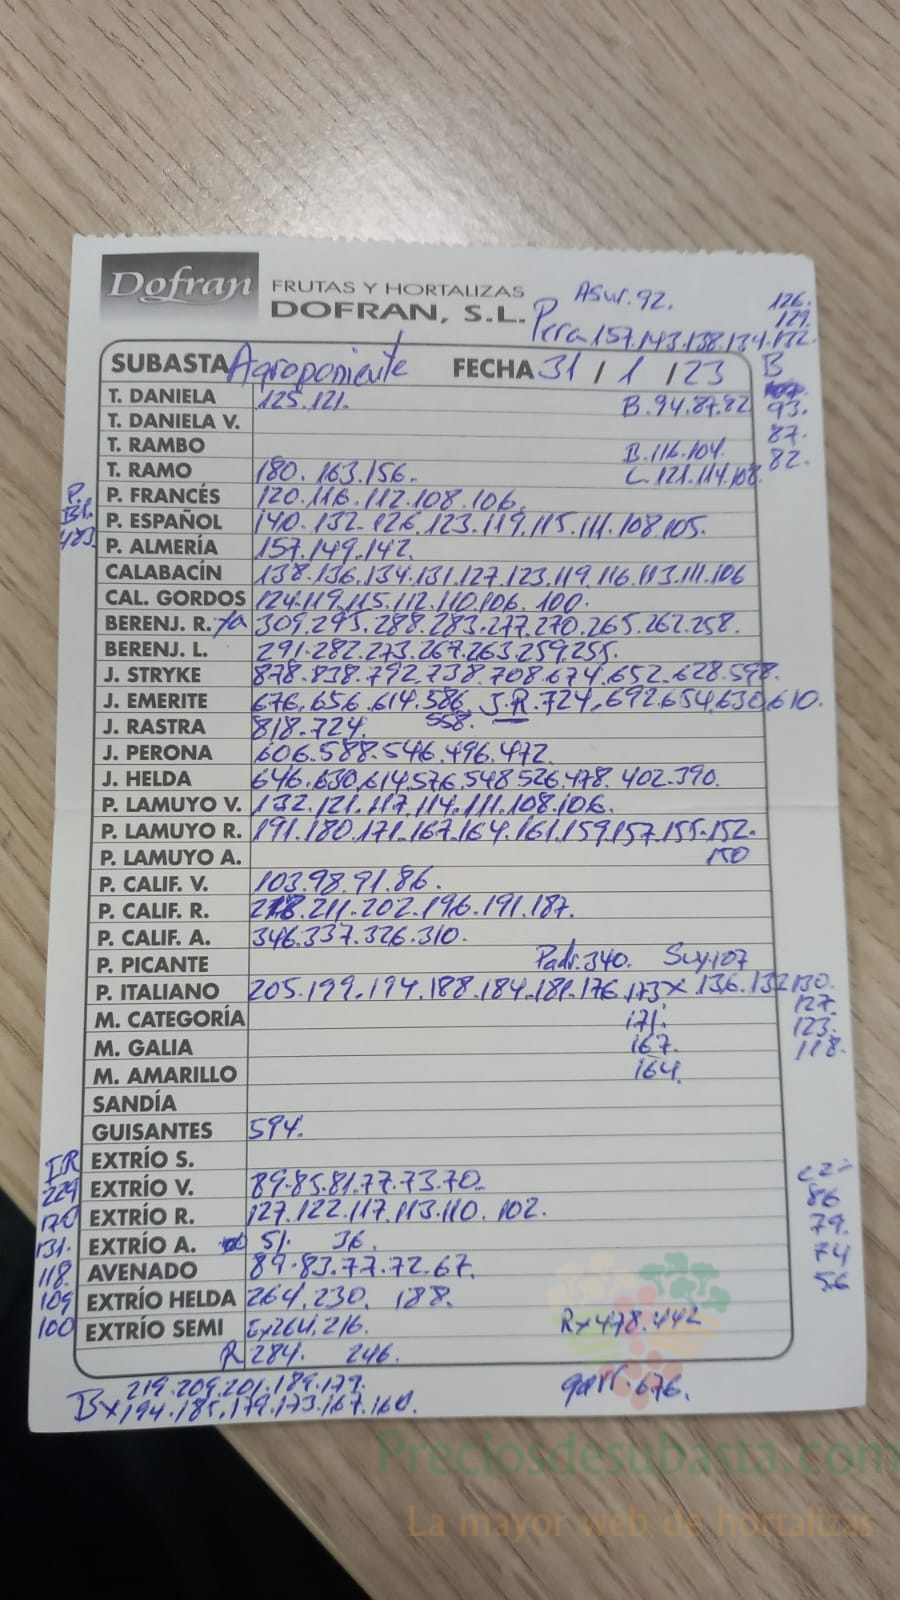 Dofran FRUTAS Y HORTALIZAS
DOFRAN, S.L.
Asur. 92. 126.
129.
Pera 157.143.138.134.132.
SUBASTA Agroponiente FECHA 31 / 1 / 23 B
T. DANIELA 125.121. B.94.87.82 93.
T. DANIELA V. 87.
T. RAMBO B.116.104. 82.
T. RAMO 180. 163.156. C.121.114.108.
P. P. FRANCÉS 120.116.112.108.106.
Bl. P. ESPAÑOL 140.132.126.123.119.115.111.108.105.
483. P. ALMERÍA 157.149.142.
CALABACÍN 138.136.134.131.127.123.119.116.113.111.106
CAL. GORDOS 124.119.115.112.110.106.100.
BERENJ. R. 309.295.288.283.277.270.265.262.258.
BERENJ. L. 291.282.273.267.263.259.255.
J. STRYKE 878.838.792.738.708.674.652.628.598.
J. EMERITE 676.656.614.586. J.R.724.692.654.630.610.
J. RASTRA 818.724. 558.
J. PERONA 606.588.546.496.472.
J. HELDA 646.630.614.576.548.526.478.402.390.
P. LAMUYO V. 132.121.117.114.111.108.106.
P. LAMUYO R. 191.180.171.167.164.161.159.157.155.152.
P. LAMUYO A. 150
P. CALIF. V. 103.98.91.86.
P. CALIF. R. 218.211.202.196.191.187.
P. CALIF. A. 346.337.326.310.
P. PICANTE Padr.340. Sury.107
P. ITALIANO 205.199.194.188.184.181.176.173x 136.132.130.
M. CATEGORÍA 171. 127.
M. GALIA 167. 123.
M. AMARILLO 164. 118.
SANDÍA
GUISANTES 594.
IR EXTRÍO S. CZ-
229 EXTRÍO V. 89.85.81.77.73.70. 86
170 EXTRÍO R. 127.122.117.113.110.102. 79.
131. EXTRÍO A. 51. 36. 74
118. AVENADO 89.83.77.72.67. 56
109 EXTRÍO HELDA 264.230. 188.
100 EXTRÍO SEMI Ex264.216. Rx478.442
R 284. 246.
219.209.201.189.179. garr.676.
Bx194.185.179.173.167.160.
Preciosdesubasta.com
La mayor web de hortalizas